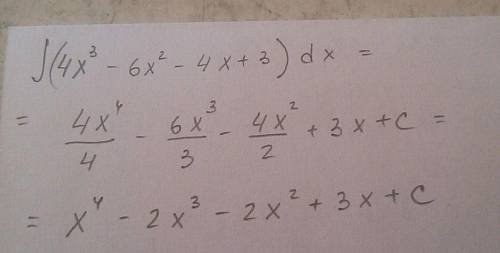 ∫(4x³ - 6x² - 4x + 3) dx =
= 4x⁴/4 - 6x³/3 - 4x²/2 + 3x + C =
= x⁴ - 2x³ - 2x² + 3x + C